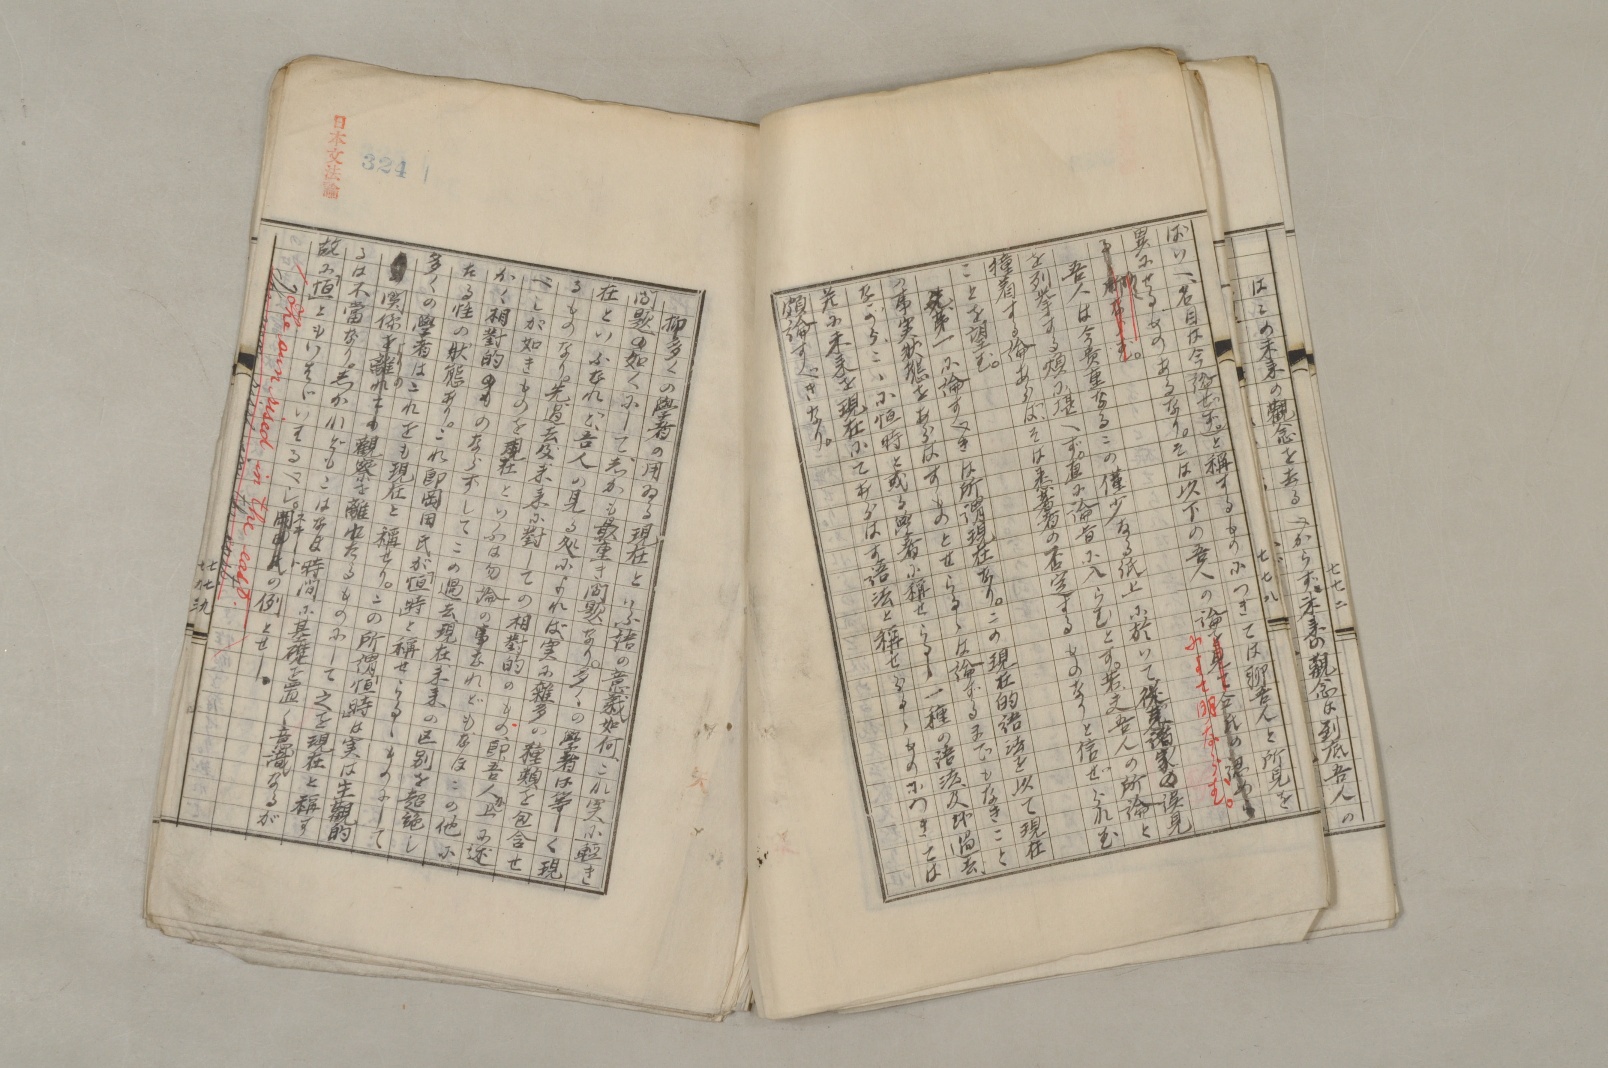 はこの未来の觀念を去るべからず。未来の觀念は到底吾人の
七七二
七七八
ばいへ、名目は今論ぜず。と稱するものにつきては聊吾人と所見を
異にせるものあるなり。そは以下の吾人の論を見て
やがて明ならむ。
吾人は今貴重なるこの僅少なる紙上に於いて従来諸家の誤見
を列擧する煩に堪へず。直に論旨に入らむとす。若夫吾人の所論と
撞着する論あらば、そは悉著者の否定するものなりと信ぜられむ
ことを望む。
第一に論ずべきは所謂現在なり。この現在的語法を以て現在
の事実状態をあらはすものとせらるゝは論ずるまでもなきこと
ながら、こゝに恒時と或る學者に稱せらるゝ一種の語法又は過去
並に未来を現在にてあらはす語法と稱せらるゝものにつきては
頗論ずべきあり。
日本文法論
324
抑多くの學者の用ゐる現在といふ語の意義如何、これ実に輕き
問題の如くにして、しかも最重き問題なり。多くの學者は等しく現
在といふなれど、吾人の見る処によれば実に雜多の種類を包含せ
るものなり。先過去及未来に對しての相對的のもの、即吾人が上に述
べしが如きものを現在といふは勿論の事なれどもなほこの他に
かく相對的のものならずしてこの過去現在未来の区別を超絶し
たる性の状態あり。これ即岡田氏が「恒時」と稱せらるゝものにして
多くの學者はこれをも現在と稱せり。この所謂恒時は実は主観的
関係を離れたる觀察を離れたるものにして之を現在と稱す
るは不當なり。しかれどもこはなほ時間に基礎を置く意識なるが
故に「恒」ともいはばいはるべし。
スヰートの例とせし
The sun rised in the east.
七七九